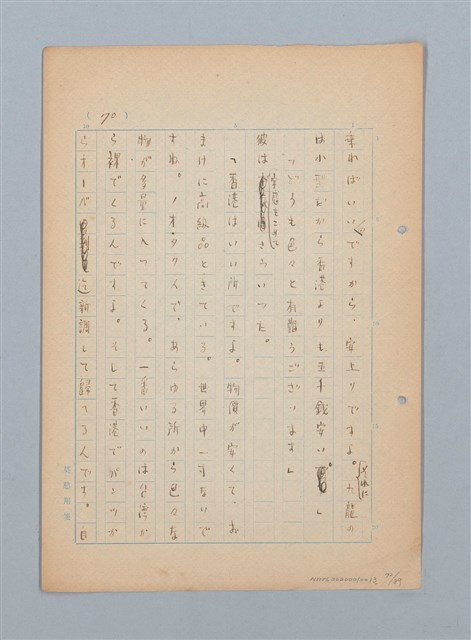 (70)
乗ればいいですから、安上りですよ。それに九龍の
は小型だから香港よりも五十銭安い。」
「どうも色々と有難うございます」
彼は実感をこめてさういつた。
「香港はいい所ですよ。物價が安くて、お
まけに高級品ときている。世界中一すないで
すね。ノオ・タクスで、あらゆる所から色々な
物が多量に入つてくる。一番いいのは台湾か
ら裸でくるんですよ。そして香港でパンツか
らオーバ迄新調して歸へるんです。日
70/89